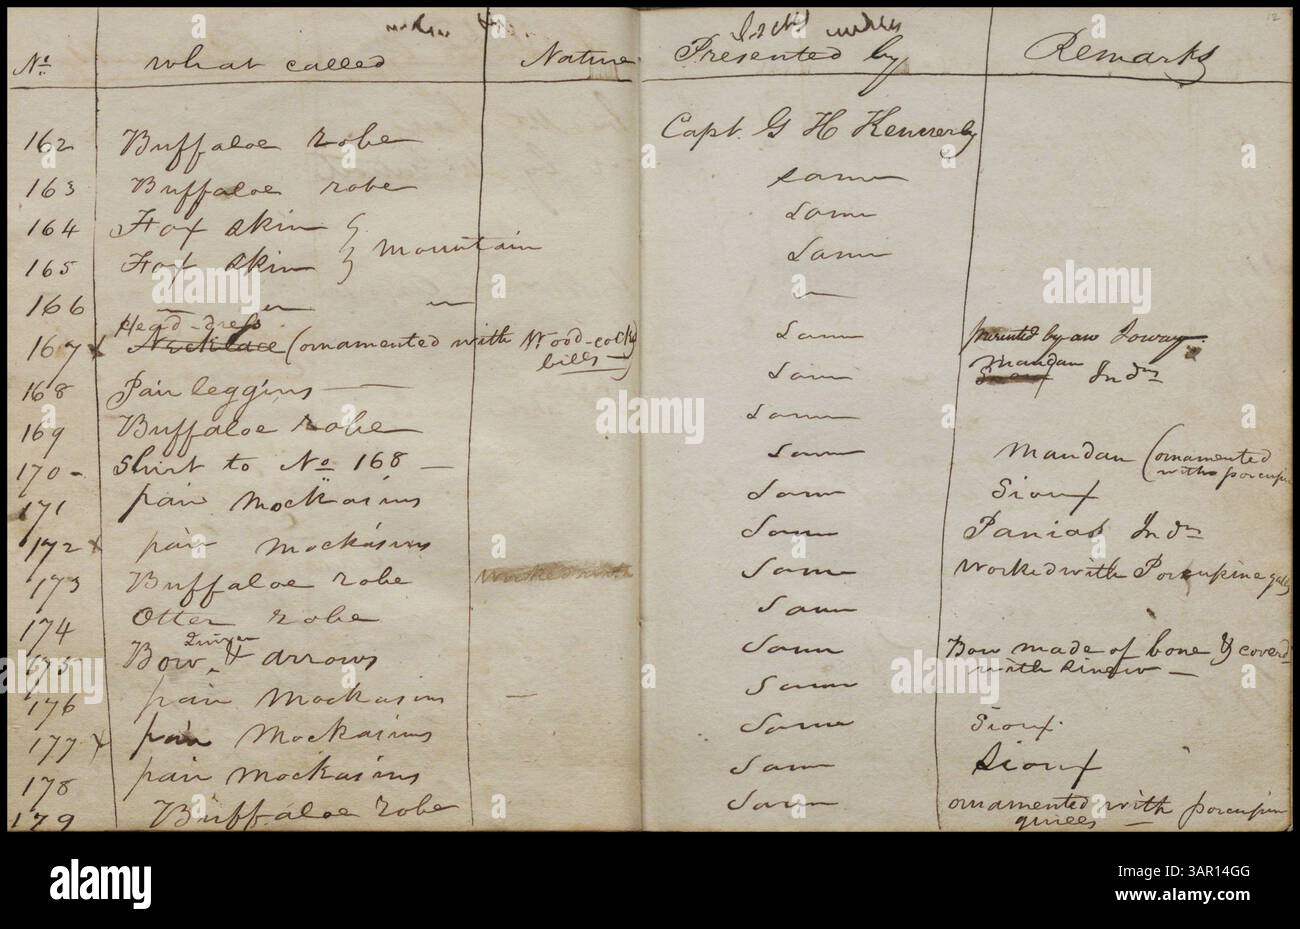 12
No. what called Nature Presented by Remarks
162 Buffaloe robe Capt. G H Kennerly
163 Buffaloe robe same
164 Fox skin } Same
165 Fox skin } mountain Same
166 — " " "
Head-dress
167 x Necklace (ornamented with Wood-cock bills) Same presented by an Ioway.
Mandan
168 Pair leggins — Same Sioux Inds
169 Buffaloe robe — Same
170 - Shirt to No 168 — Same Mandan (ornamented with porcupin
171 pair mockasins Same Sioux
172 x pair mockasins Same Panias Inds
173 Buffaloe robe worked with Same Worked with Porcupine quills
174 Otter robe Same
Quiver
175 Bow, & arrows Same Bow made of bone & coverd with sinew —
176 pair mockasins — Same
177 x pair mockasins Same Sioux
178 pair mockasins Same Sioux
179 Buffaloe robe Same ornamented with porcupin quills —
alamy
Image ID: 3AR14GG
www.alamy.com